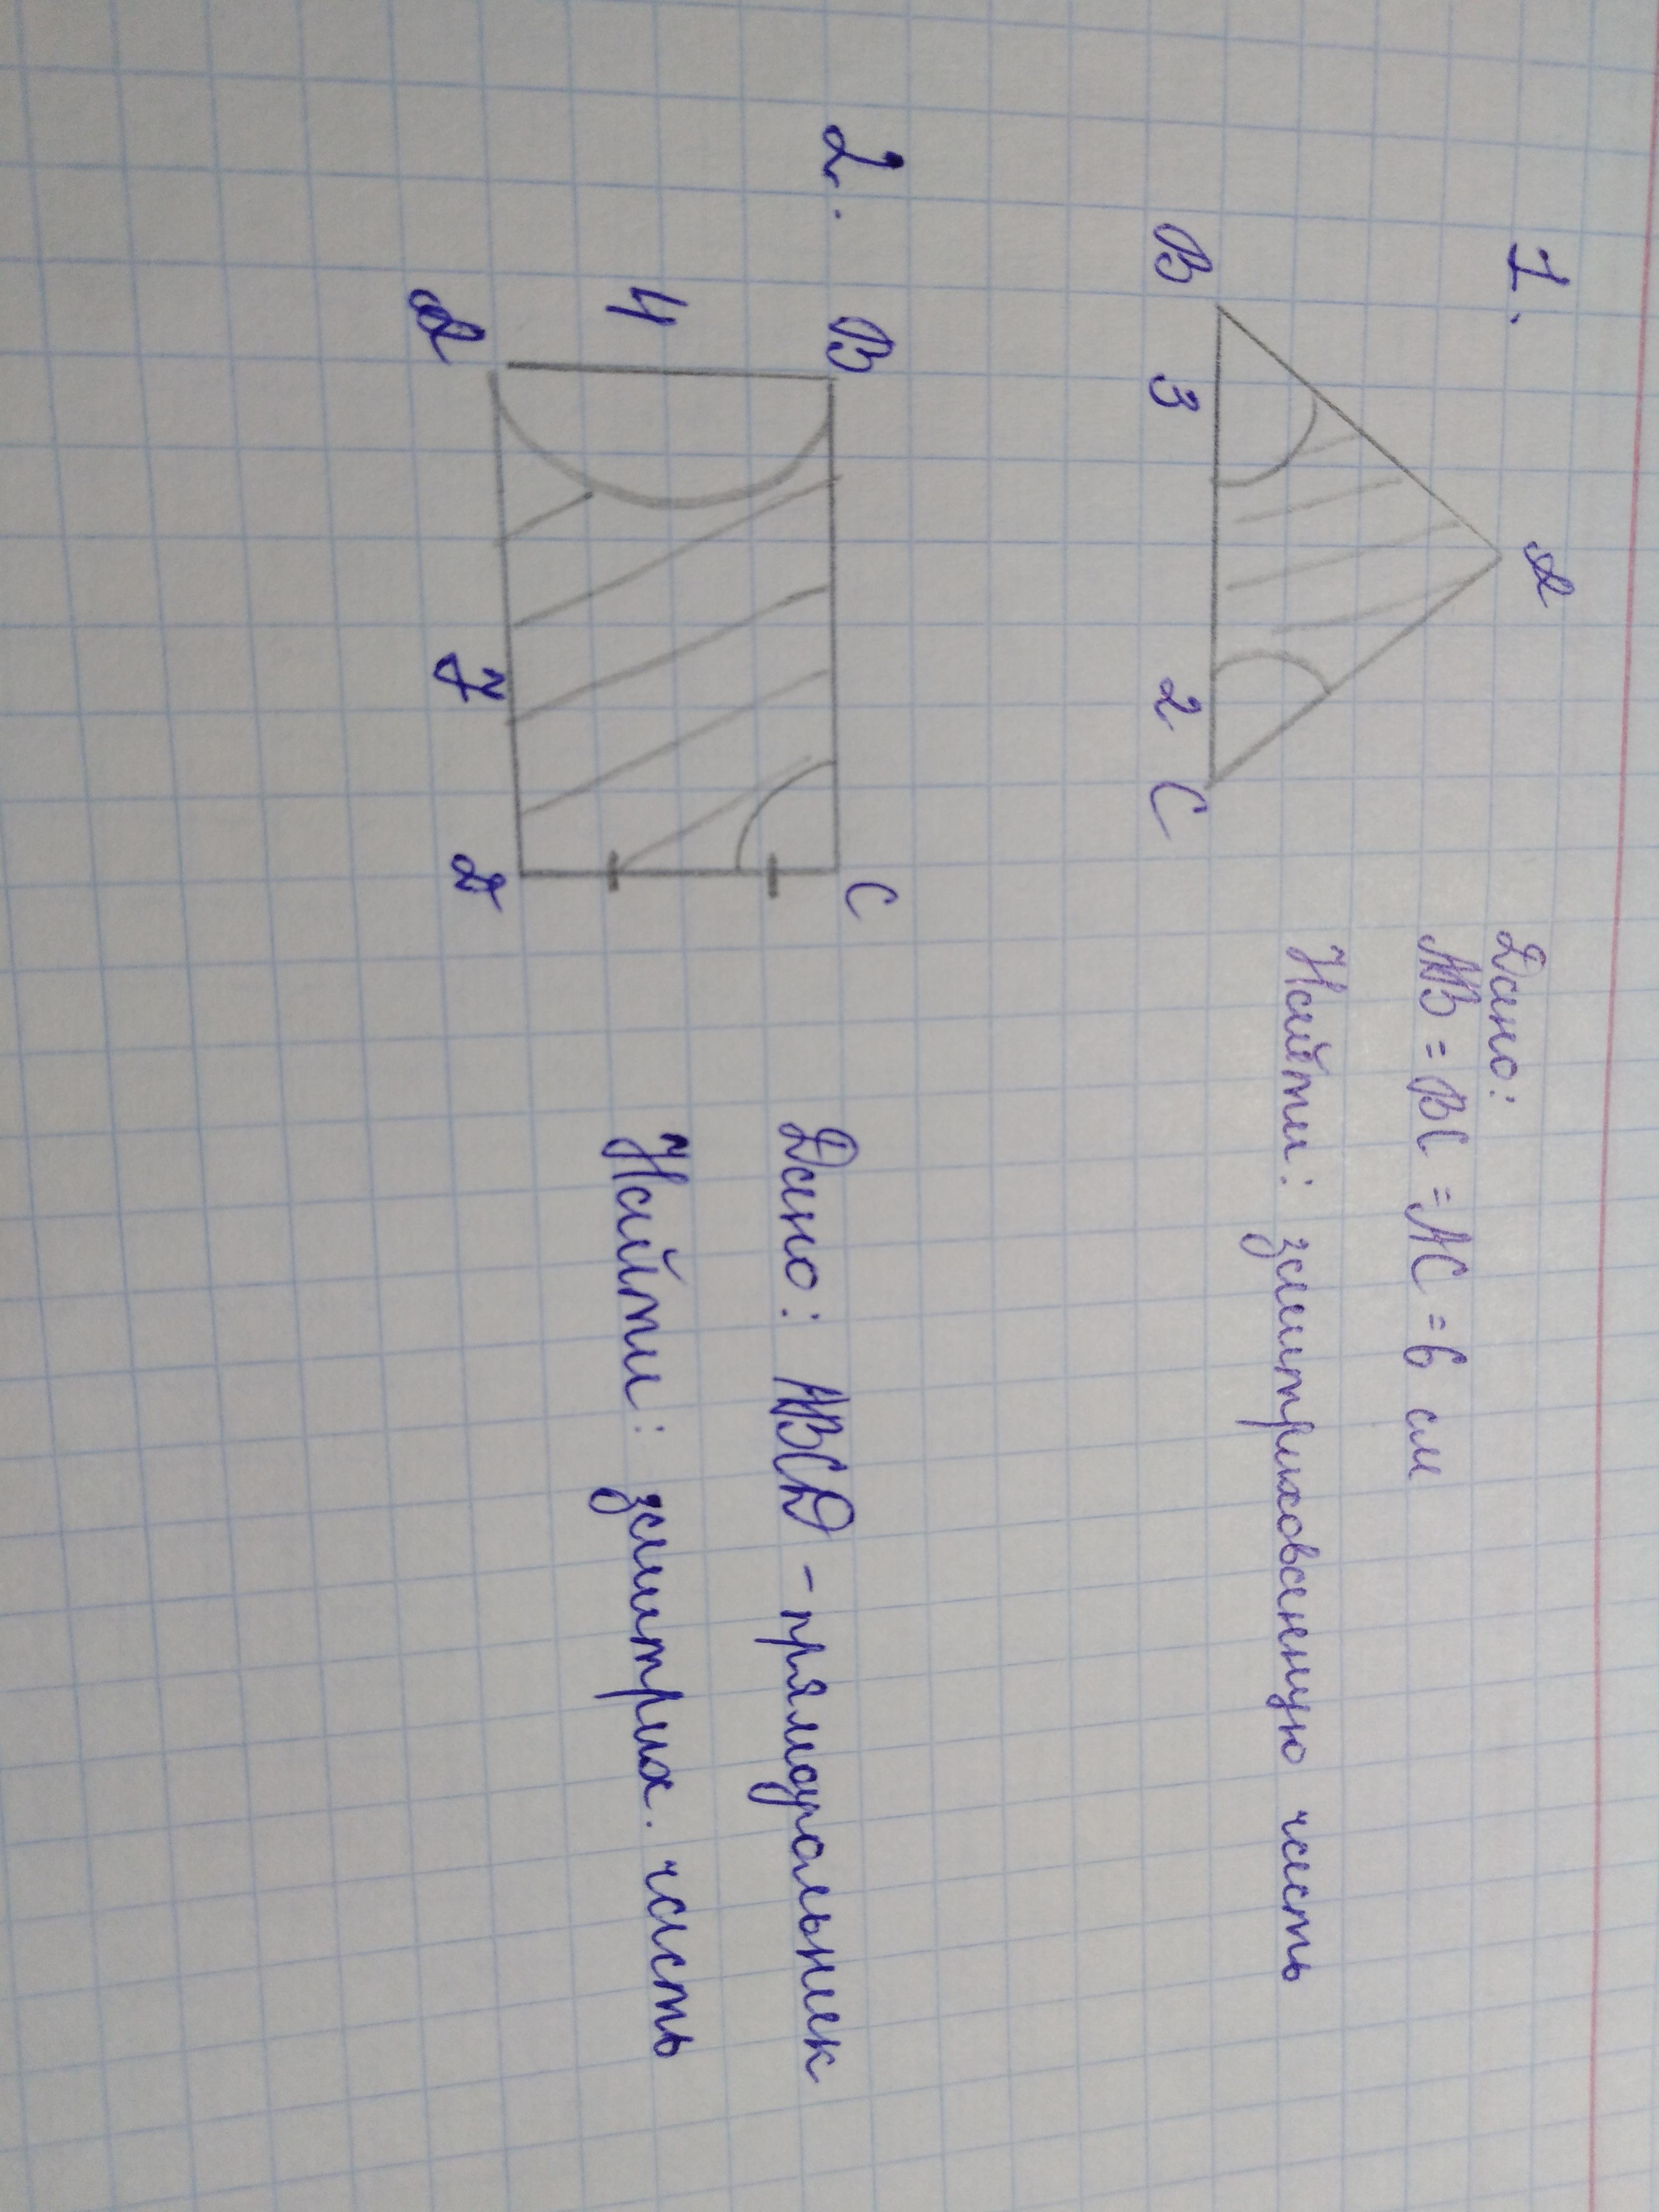 1.
A
B
3
2
C
Дано:
AB = BC = AC = 6 см
Найти: заштрихованную часть
2.
B
C
4
A
7
D
Дано: ABCD - прямоугольник
Найти: заштрих. часть